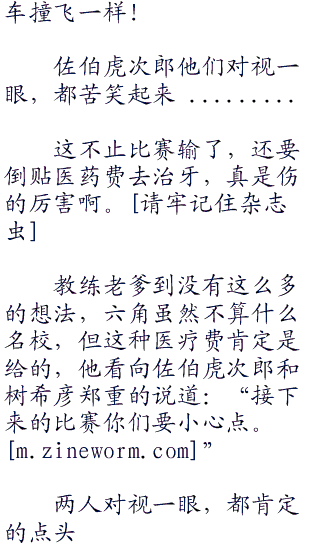 车撞飞一样！
佐伯虎次郎他们对视一
眼，都苦笑起来 .........
这不止比赛输了，还要
倒贴医药费去治牙，真是伤
的厉害啊。[请牢记住杂志
虫]
教练老爹到没有这么多
的想法，六角虽然不算什么
名校，但这种医疗费肯定是
给的，他看向佐伯虎次郎和
树希彦郑重的说道：“接下
来的比赛你们要小心点。
[m.zineworm.com]”
两人对视一眼，都肯定
的点头